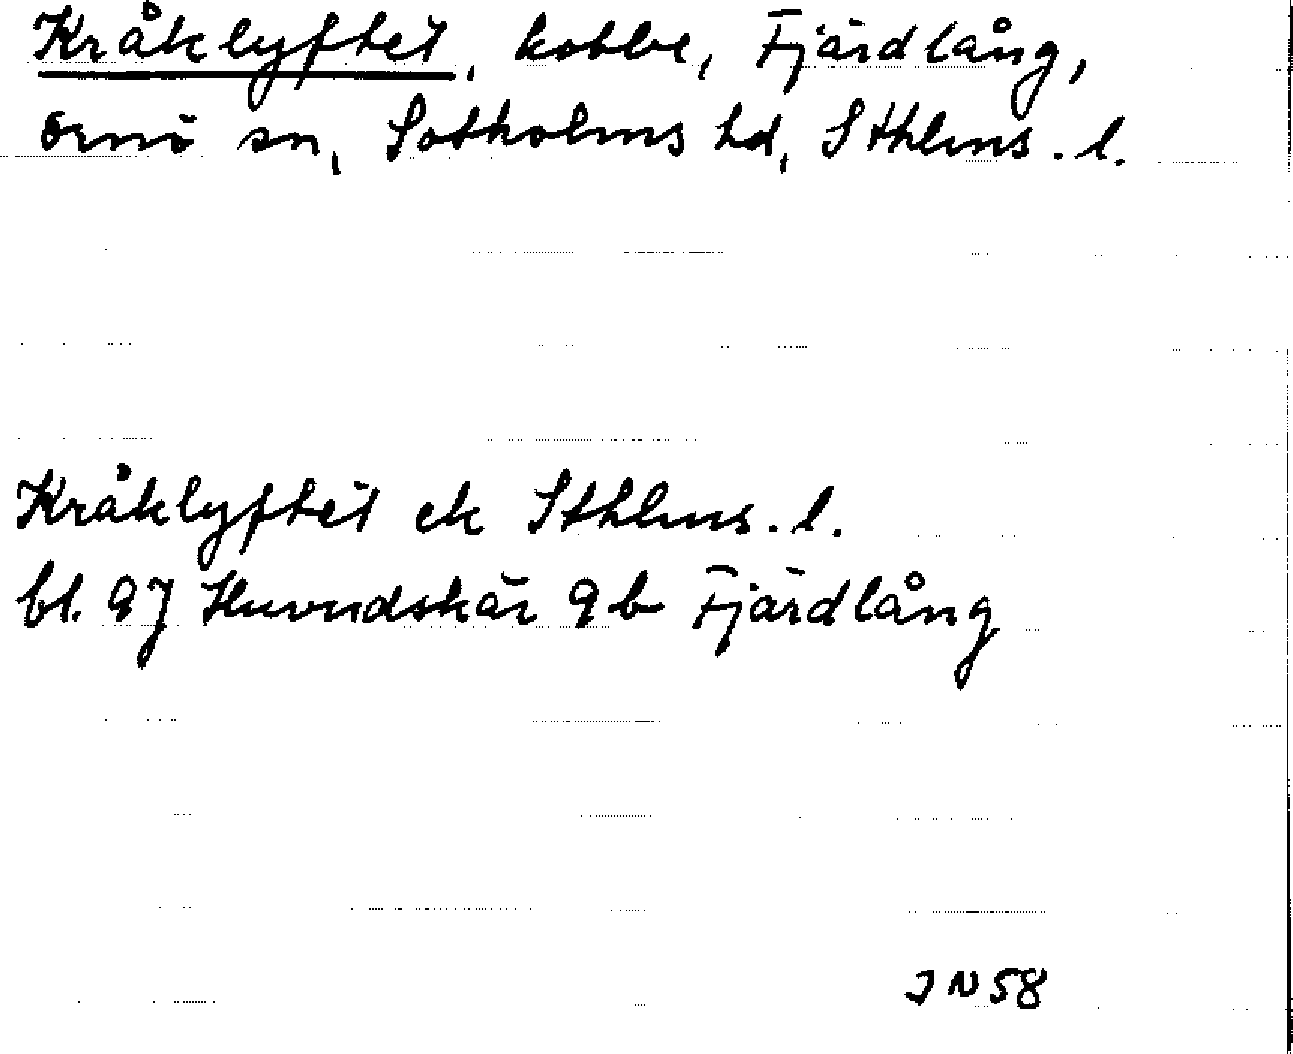 Kråklyftet, kobbe, Fjärdlång,
Ornö sn, Sotholms hd, Sthlms. l.
Kråklyftet ek Sthlms. l.
bl. 97 Huvudskär 9b Fjärdlång
JN 58